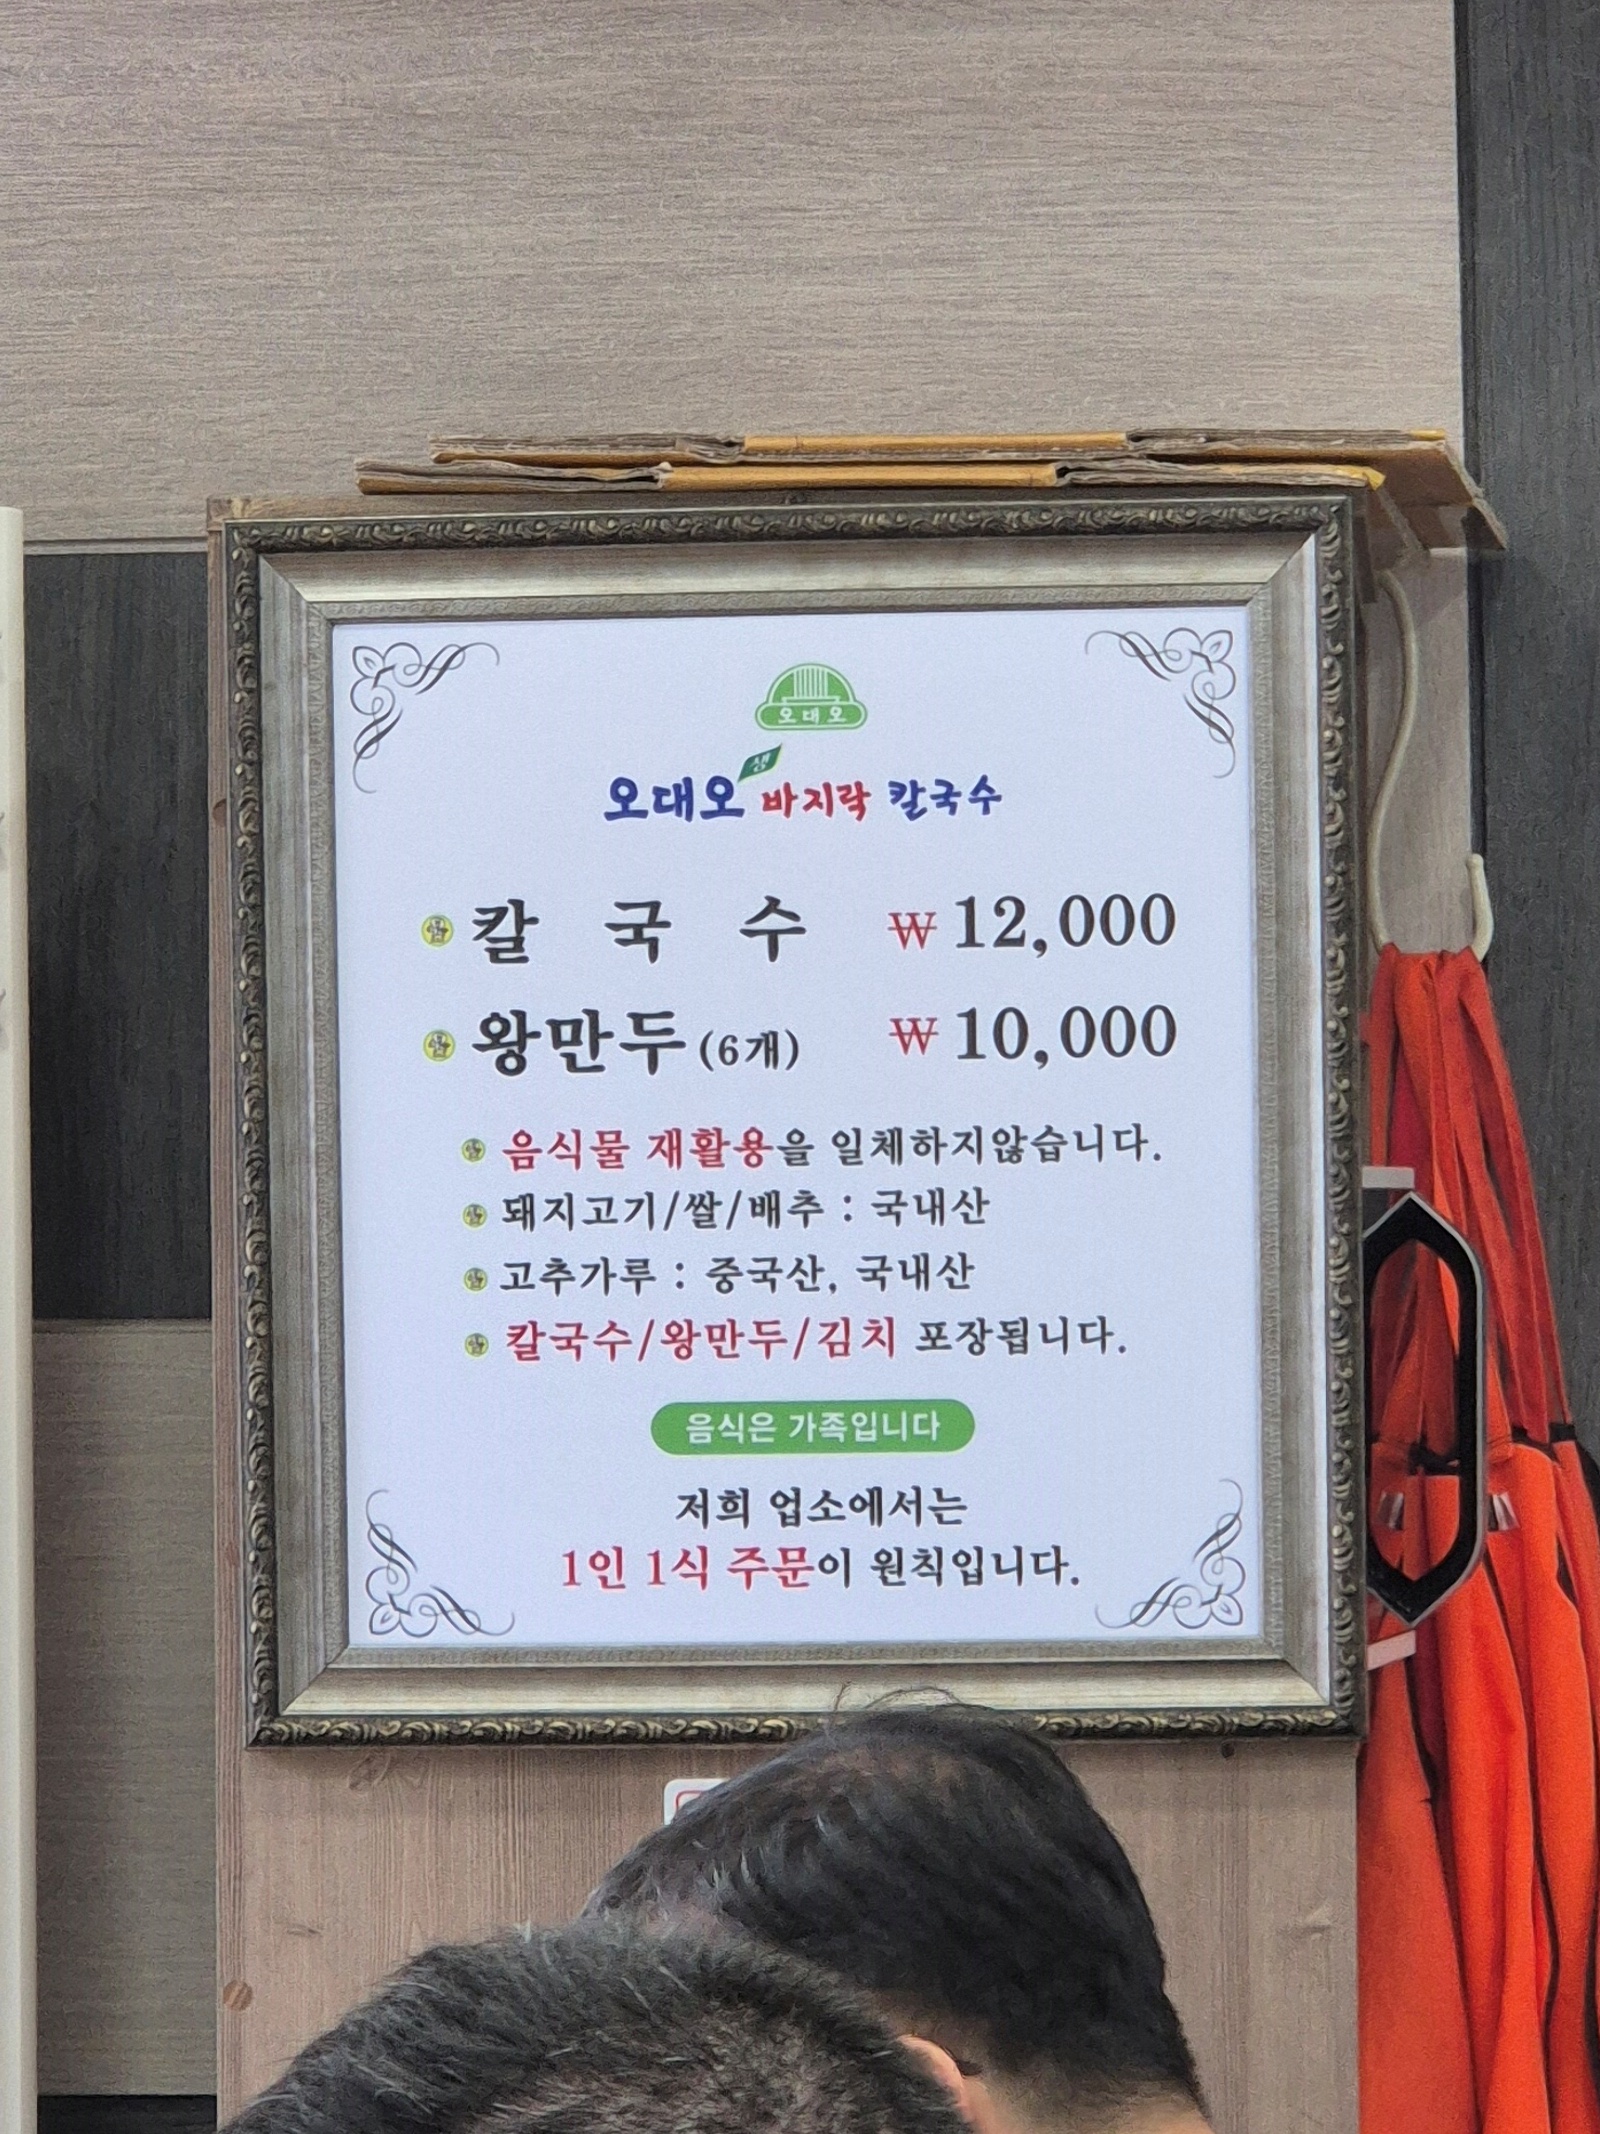 오대오
생
오대오 바지락 칼국수
칼국수 ₩12,000
왕만두(6개) ₩10,000
음식물 재활용을 일체하지않습니다.
돼지고기/쌀/배추 : 국내산
고추가루 : 중국산, 국내산
칼국수/왕만두/김치 포장됩니다.
음식은 가족입니다
저희 업소에서는
1인 1식 주문이 원칙입니다.